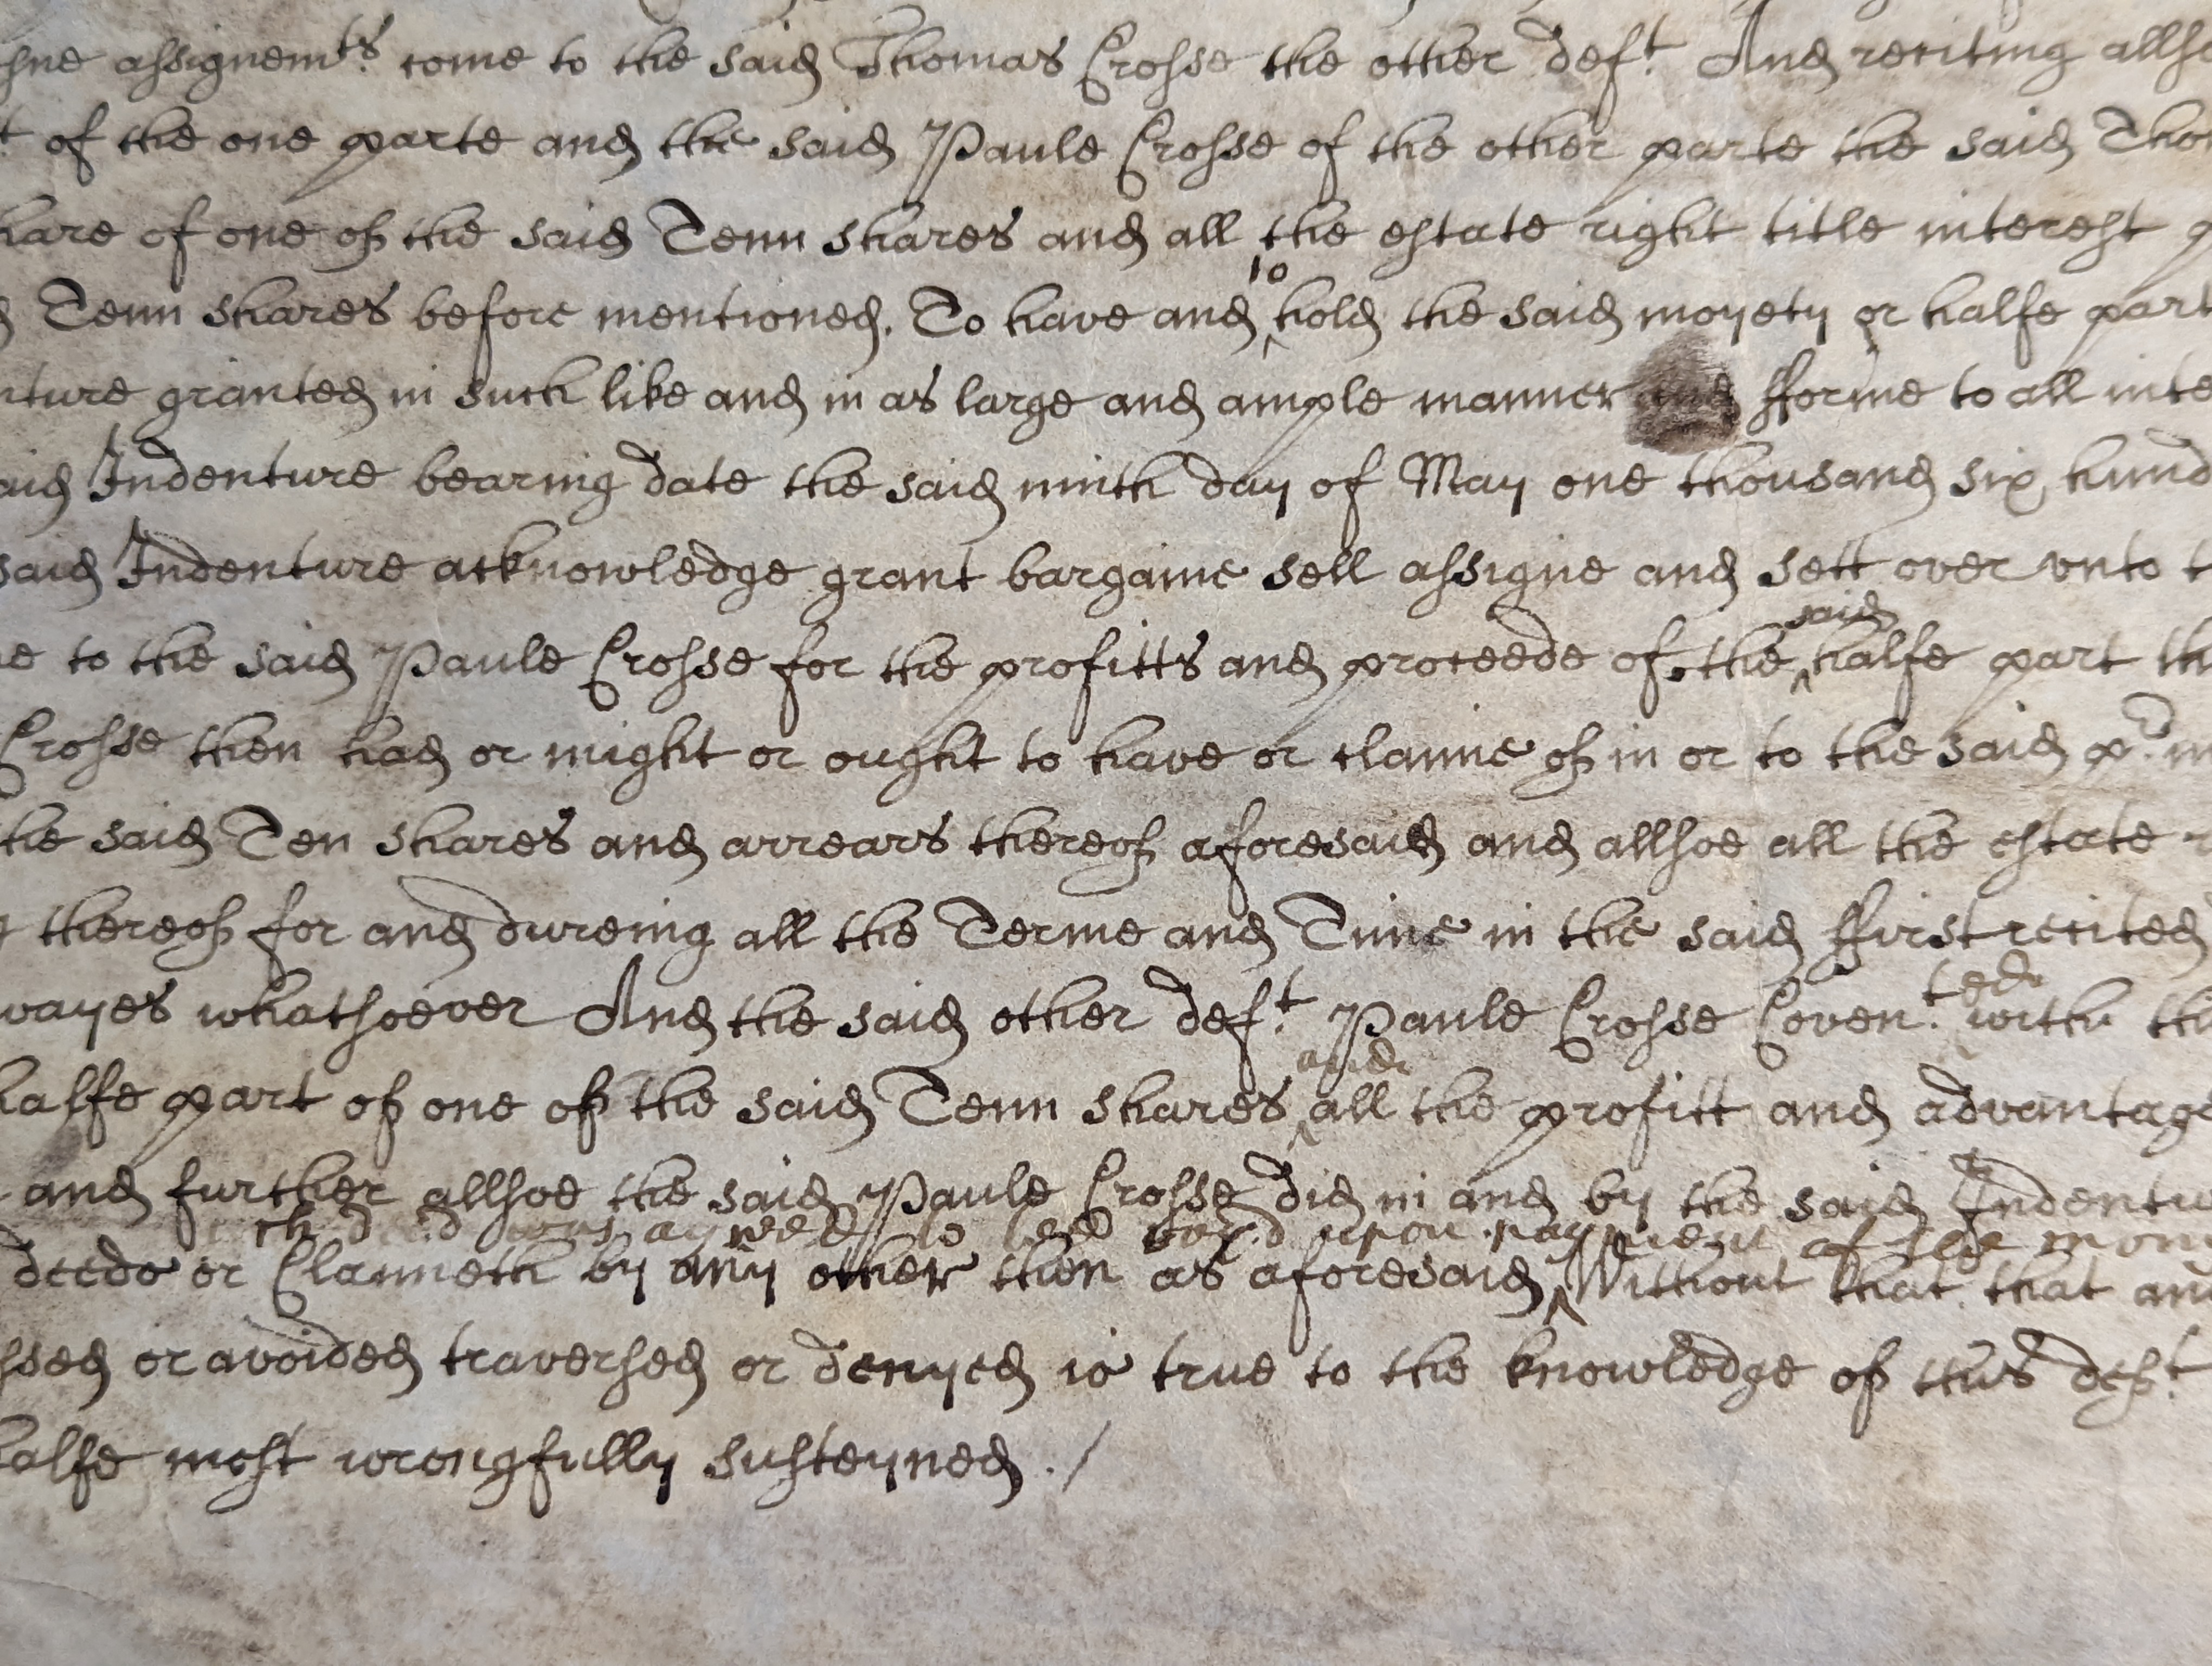 assignemts. come to the said Thomas Crosse the other deft. And reciting allso
of the one parte and the said Paule Crosse of the other parte the said Tho
hare of one of the said Tenn shares and all the estate right title interest
Tenn shares before mentioned. To have and to hold the said moyety or halfe part
nture granted in such like and in as large and ample manner and fforme to all inte
aid Indenture bearing date the said ninth day of May one thousand six hund
said Indenture acknowledge grant bargaine sell assigne and sett over vnto t
to the said Paule Crosse for the profitts and proceede of the said halfe part th
Crosse then had or might or ought to have or claime of in or to the said pr. m
the said Ten shares and arrears thereof aforesaid and allsoe all the estate r
thereof for and dureing all the Terme and Time in the said ffirst recited
wayes whatsoever And the said other deft. Paule Crosse Coven.ted with the
halfe part of one of the said Tenn shares and all the profitt and advantage
and further allsoe the said Paule Crosse did in and by the said Indentu
deed was agreed to bee voyd upon payment of the mony
deede or Claimeth by any other then as aforesaid Without that that any
ssed or avoided traversed or denyed is true to the knowledge of this deft.
halfe most wrongfully susteyned ./